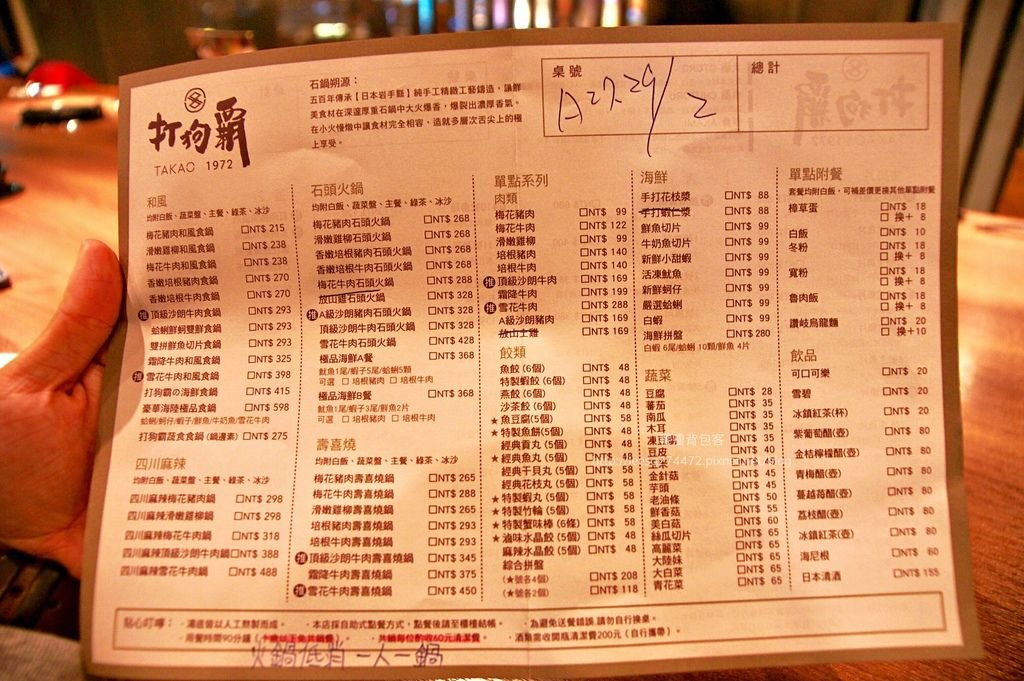 打狗霸
TAKAO 1972
石鍋朔源：
五百年傳承【日本岩手縣】純手工精緻工藝鑄造，讓鮮
美食材在深邃厚重石鍋中大火爆香，爆裂出濃厚香氣。
在小火慢燉中讓食材完全相容，造就多層次舌尖上的極
上享受。
桌號
總計
和風
均附白飯、蔬菜盤、主餐、綠茶、冰沙
梅花豬肉和風食鍋 □NT$ 215
滑嫩雞柳和風食鍋 □NT$ 238
梅花牛肉和風食鍋 □NT$ 238
香嫩培根豬肉食鍋 □NT$ 270
香嫩培根牛肉食鍋 □NT$ 270
推 頂級沙朗牛肉食鍋 □NT$ 293
蛤蜊鮮蚵雙鮮食鍋 □NT$ 293
雙拼鮮魚切片食鍋 □NT$ 293
霜降牛肉和風食鍋 □NT$ 325
推 雪花牛肉和風食鍋 □NT$ 398
打狗霸の海鮮食鍋 □NT$ 415
豪華海陸極品食鍋 □NT$ 598
蛤蜊/蚵仔/蝦子/鮮魚/牛奶魚/雪花牛肉
打狗霸蔬食食鍋(鍋邊素) □NT$ 275
四川麻辣
均附白飯、蔬菜盤、主餐、綠茶、冰沙
四川麻辣梅花豬肉鍋 □NT$ 298
四川麻辣滑嫩雞柳鍋 □NT$ 298
四川麻辣梅花牛肉鍋 □NT$ 318
四川麻辣頂級沙朗牛肉鍋 □NT$ 388
四川麻辣雪花牛肉鍋 □NT$ 488
石頭火鍋
均附白飯、蔬菜盤、主餐、綠茶、冰沙
梅花豬肉石頭火鍋 □NT$ 268
滑嫩雞柳石頭火鍋 □NT$ 268
香嫩培根豬肉石頭火鍋 □NT$ 268
香嫩培根牛肉石頭火鍋 □NT$ 268
梅花牛肉石頭火鍋 □NT$ 288
放山雞石頭火鍋 □NT$ 328
推 A級沙朗豬肉石頭火鍋 □NT$ 328
頂級沙朗牛肉石頭火鍋 □NT$ 328
雪花牛肉石頭火鍋 □NT$ 428
極品海鮮A餐 □NT$ 368
魷魚1尾/蝦子5尾/蛤蜊5顆
可選 □ 培根豬肉 □ 培根牛肉
極品海鮮B餐 □NT$ 368
魷魚1尾/蝦子3尾/鮮魚2片
可選 □ 培根豬肉 □ 培根牛肉
壽喜燒
均附白飯、蔬菜盤、主餐、綠茶、冰沙
梅花豬肉壽喜燒鍋 □NT$ 265
梅花牛肉壽喜燒鍋 □NT$ 288
滑嫩雞柳壽喜燒鍋 □NT$ 265
培根豬肉壽喜燒鍋 □NT$ 293
培根牛肉壽喜燒鍋 □NT$ 293
推 頂級沙朗牛肉壽喜燒鍋 □NT$ 345
霜降牛肉壽喜燒鍋 □NT$ 375
推 雪花牛肉壽喜燒鍋 □NT$ 450
單點系列
肉類
梅花豬肉 □NT$ 99
梅花牛肉 □NT$ 122
滑嫩雞柳 □NT$ 99
培根豬肉 □NT$ 140
培根牛肉 □NT$ 140
推 頂級沙朗牛肉 □NT$ 169
霜降牛肉 □NT$ 199
推 雪花牛肉 □NT$ 288
A級沙朗豬肉 □NT$ 169
放山土雞 □NT$ 169
餃類
魚餃 (6個) □NT$ 48
特製蝦餃 (6個) □NT$ 48
燕餃 (6個) □NT$ 48
沙茶餃 (6個) □NT$ 48
★ 魚豆腐(5個) □NT$ 58
★ 特製魚餅(5個) □NT$ 48
經典貢丸(5個) □NT$ 48
★ 經典魚丸(5個) □NT$ 58
經典干貝丸(5個) □NT$ 58
經典花枝丸(5個) □NT$ 58
★ 特製蝦丸(5個) □NT$ 58
★ 特製竹輪(5個) □NT$ 58
★ 特製蟹味棒(6條) □NT$ 58
★ 滷味水晶餃(5個) □NT$ 48
麻辣水晶餃(5個) □NT$ 48
綜合拼盤
(★號各4個) □NT$ 208
(★號各2個) □NT$ 118
海鮮
手打花枝漿 □NT$ 88
手打蝦仁漿 □NT$ 88
鮮魚切片 □NT$ 99
牛奶魚切片 □NT$ 99
新鮮小甜蝦 □NT$ 99
活凍魷魚 □NT$ 99
新鮮蚵仔 □NT$ 99
嚴選蛤蜊 □NT$ 99
白蝦 □NT$ 99
海鮮拼盤 □NT$ 280
白蝦 6尾/蛤蜊 10顆/鮮魚 4片
蔬菜
豆腐 □NT$ 28
蕃茄 □NT$ 35
南瓜 □NT$ 35
木耳 □NT$ 35
凍豆腐 □NT$ 35
豆皮 □NT$ 40
玉米 □NT$ 40
金針菇 □NT$ 45
芋頭 □NT$ 45
老油條 □NT$ 50
鮮香菇 □NT$ 55
美白菇 □NT$ 60
絲瓜切片 □NT$ 65
高麗菜 □NT$ 65
大陸妹 □NT$ 65
大白菜 □NT$ 65
青花菜 □NT$ 65
單點附餐
套餐均附白飯，可補差價更換其他單點附餐
樟草蛋 □NT$ 18
□ 換+ 8
白飯 □NT$ 10
冬粉 □NT$ 18
□ 換+ 8
寬粉 □NT$ 18
□ 換+ 8
魯肉飯 □NT$ 18
□ 換+ 8
讚岐烏龍麵 □NT$ 20
□ 換+10
飲品
可口可樂 □NT$ 20
雪碧 □NT$ 20
冰鎮紅茶(杯) □NT$ 20
紫葡萄醋(壺) □NT$ 80
金桔檸檬醋(壺) □NT$ 80
青梅醋(壺) □NT$ 80
蔓越莓醋(壺) □NT$ 80
荔枝醋(壺) □NT$ 80
冰鎮紅茶(壺) □NT$ 80
海尼根 □NT$ 60
日本清酒 □NT$ 155
貼心叮嚀： ·湯底皆以人工熬製而成。 ·本店採自助式點餐方式，點餐後請至櫃檯結帳。 ·為避免送餐錯誤，請勿自行換桌。
·用餐時間90分鐘 ·共鍋每位酌收60元清潔費。 ·酒類需收開瓶清潔費200元（自行攜帶）。
火鍋低消一人一鍋